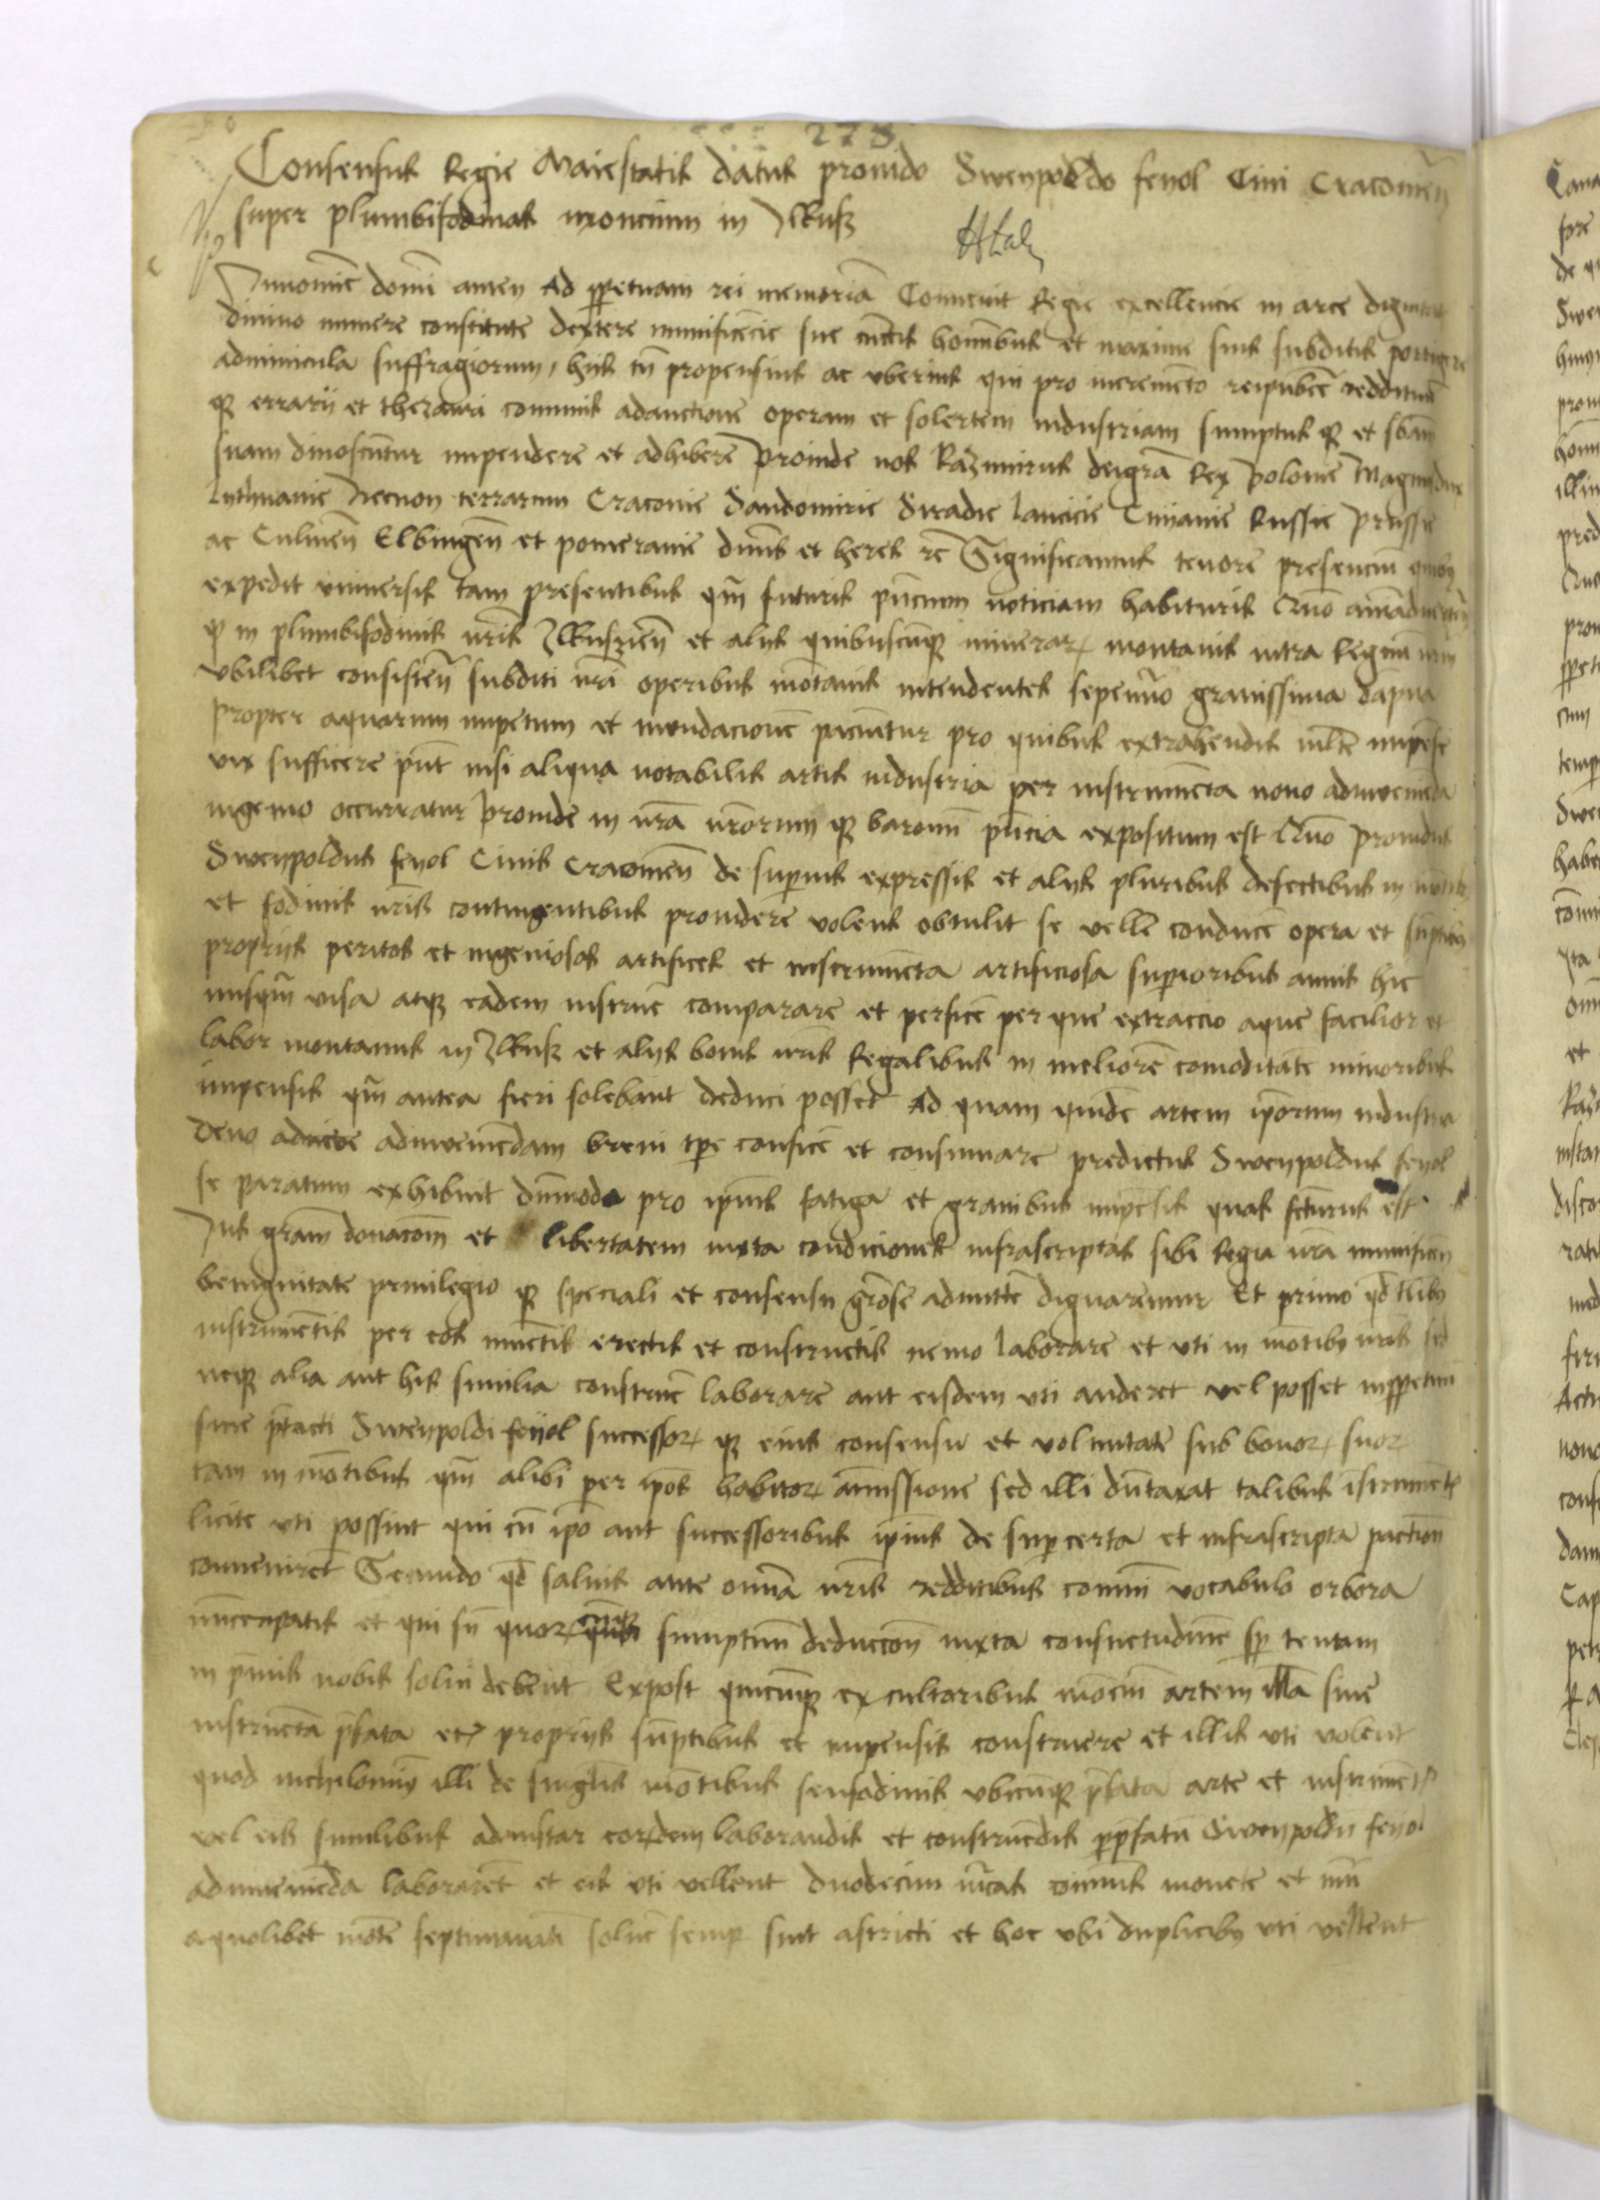 278
Consensus Regie Maiestatis datus provido Sweypoldo feyol Civi Cracovien̄
super plumbifodinas moncium in Ilkusz
In nomīe domī amen Ad ꝑpetuam rei memoriā Convenit Regie excellencie in arce
divino munere constitute dextere munificēcie sue cunctis homībus et maxime suis subditis porrigere
adminicula suffragiorum, hiis tn̄ propensius ac uberius qui pro incremēto reipublicē reddituū
qꝫ errarii et thezauri communis adauctione operam et solertem industriam sumptus qꝫ et
suam dinoscūtur impendere et adhibere Proinde nos Kazimirus deigrā Rex Polonie Magnusdux
luthuanie Necnon terrarum Cracovie Sandomirie Siradie lancicie Cuiavie Russie Prussie
ac Culmen̄ Elbingen̄ et pomeranie dn̄us et heres rc̄ Significamus tenore presenciū quibus
expedit universis tam presentibus qm̄ futuris pn̄cium noticiam habituris Quō
qꝫ in plumbifodinis nr̄is Ilkuszien̄ et aliis quibuscūqꝫ minerarꝫ montanis intra Regnū nrm̄
ubilibet consisten̄ subditi nrī operibus mōtanis intendentes sepenuō gravissima dāpna
propter aquarum impetum et inundacionē paciūtur pro quibus extrahendis multe impēse
vix sufficere pn̄t nisi aliqua notabilis artis industria per instrumēta novo adinvenīēda
ingenio occurratur Proinde in nrā nrōrum qꝫ baronū pn̄cia expositum est Quō Providus
Sweypoldus feyol Civis Cracovien̄ de supranis expressis et aliis pluribus defectibus in mōtibus
et fodinis nrīs contingentibus providere volens obtulit se velle conducē opera et
propriis peritos et ingeniosos artifices et instrumēta artificiosa supīoribus annis hic
nusqm̄ visa atqꝫ eadem instruē comparare et perficē per que extraccio aque facilior et
labor montanus in Ilkusz et aliis bonis nrīs Regalibus in meliorē comoditatē minoribus
impensis qm̄ antea fieri solebant deduci posset Ad quam quidē artem ipōrum industria
deno adinve adinvenīēdam brevi tpē conficē et consumare predictus Sweypoldus feyol
se paratum exhibuit dūmodo pro ipīus fatiga et gravibus impēsis quas fcturus est
Jus gram̄ donacōm et libertatem iuxta condiciones infrascriptas sibi Regia nrā munificen
benignitate privilegio qꝫ speciali et consensu grōse admittē dignaremur Et primo qd
instrumētis per eos invētis erectis et constructis nemo laborare et uti in mōtibus nrīs sed
neqꝫ alia aut his similia construē laborare aut eisdem uti auderet vel posset inꝑpetuū
sine prētacti Sweypoldi feyol successorꝫ qꝫ eius consensu et voluntate sub bonorꝫ suorꝫ
tam in mōtibus qm̄ alibi per ipōs habitorꝫ amissione sed illi dūtaxat talibus īstrumētis
licite uti possint qui cū ipō aut successoribus ipīus de super certa et infrascripta pactione
conveniret Secundo qd̄ salvis ante omīa nrīs redditibus comūi vocabulo orbora
nūccupatis et qui sn̄ quorcūqꝫ sumptuū deduccōn iuxta consuetudinē sp̄ tentam
in primis nobis solui debēnt Expost quicūqꝫ ex cultoribus mōciū artem illā sive
instructa prefata etꝫ propriis sūptibus et impensis construere et illis uti volent
quod nichilomiꝰ illi de singulis mōtibus seu fodinis ubicūqꝫ prefata arte et instrumētis
vel eis similibus adinstar eordem laborandis et construēdis ꝑ prefatū Sweypoldū feyol
adinvenīēda laborarēt et eis uti vellent duodecim mrcas comūis monete et
a quolibet mōte septimanatī soluē semꝑ sint astricti et hoc ubi duplicibꝫ uti vellent